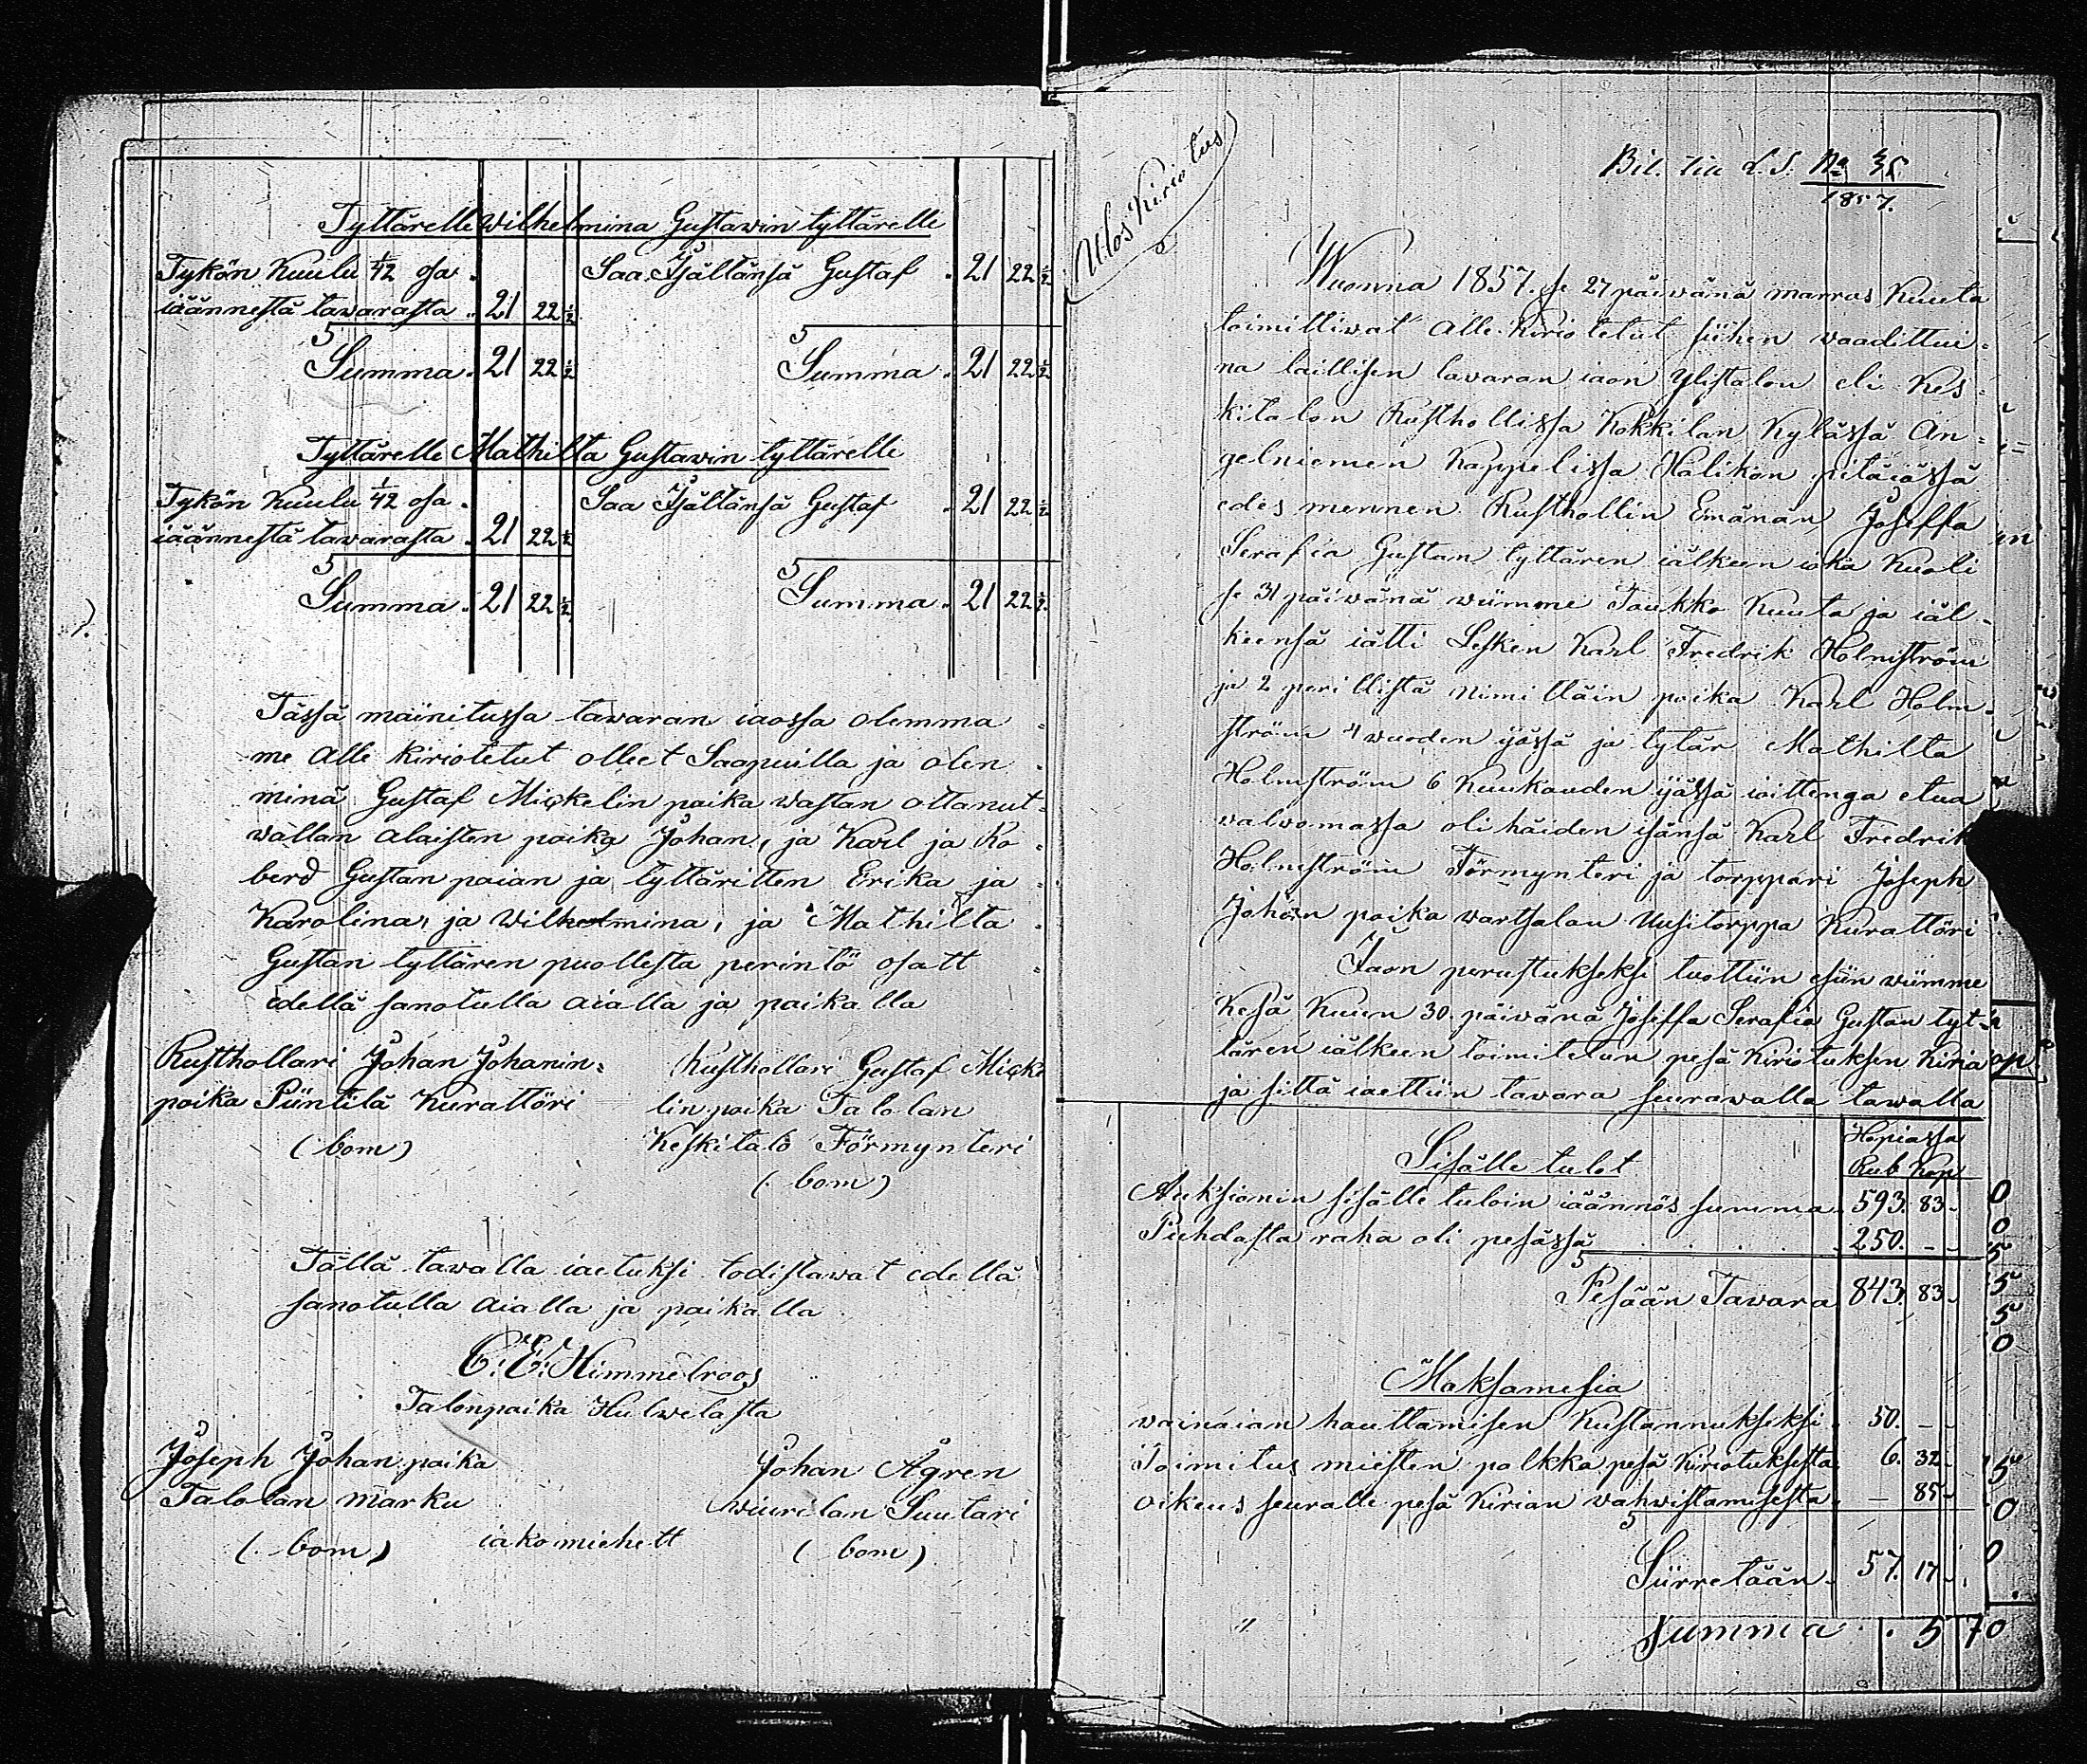 Tyttärelle Wilhelmina Gustawin tyttärelle
Tykön Kuulu 1/42 osa .
iäännestä tawarasta .. 21 22 1/2
5
Summa . 21 22 1/2
Saa Isältänsä Gustaf . 21 22 1/2
5
Summa . 21 22 1/2
Tyttärelle Mathilta Gustawin tyttärelle
Tykön Kuulu 1/42 osa .
iäännestä tawarasta . 21 22 1/2
5
Summa . 21 22 1/2
Saa Isältänsä Gustaf . 21 22 1/2
5
Summa . 21 22 1/2
Tässä mainitussa tawaran iaossa olemma =
me alle kiriotetut olleet Saapuilla ja olen =
minä Gustaf Mickelin poika wastan ottanut =
wallan alaisten poika Johan, ja Karl ja Ro =
berd Gustan poian ja tyttäritten Erika ja =
Karolina, ja Wilhelmina, ja Mathilta =
Gustan tyttären puollesta perintö osatt =
edellä sanotulla aialla ja paikalla
Rusthollari Johan Johanin =
poika Püntilä Kurattöri
(bom)
Rusthollari Gustaf Micke
lin poika Talolan
Keskitalo Förmynteri
(bom)
Tällä tawalla iaetuksi todistawat edellä
sanotulla aialla ja paikalla
C: E: Himmelroos
Talonpoika Hulwelasta
Joseph Johan poika
Talolan marku
(bom)
iako miehett
Johan Ågren
wiurilan Suutari
(bom)
Ulos Kiriotus
Bil. till L. S. No 35
1857.
Wuonna 1857. se 27 päiwänä marras Kuuta
toimittiwat alle Kiriotetut siihen waadittui =
na laillisen tawaran iaon Ylistalon eli Kes =
kitalon Rusthollissa Kokkilan Kylässä An =
gelniemen Kappelissa Halikon pitäiässä
edes mennen Rusthollin Emänän Joseffa
Serafia Gustan tyttären iälkeen ioka Kuoli
se 31 päiwänä wiimme Toukko Kuuta ja iäl =
keensä iätti Lesken Karl Fredrik Holmström
ja 2 perillistä nimittäin poika Karl Holm =
ström 4 wuoden ijässä ja tytär Mathilta
Holmström 6 Kuukauden ijässä ioittenga etua
walwomassa oli häiden isänsä Karl Fredrik
Holmström Förmynteri ja torppari Joseph
Johan poika wartsalan Uusitorppa Kurattöri
Jaon perustukseksi tuottiin esiin wiimme
Kesä Kuun 30 päiwänä Joseffa Serafia Gustan tyt =
tären iälkeen toimitetun pesä Kiriotuksen Kiria
ja siitä iaettiin tawara seurawalla tawalla
Hopiassa
Rub Kop
Sisälle tulot
Auksionin sisälle tuloin iäännös summa . 593. 83.
Puhdasta raha oli pesässä . . . 250. - -
5
Pesään Tawara 843. 83.
Maksamesia
wainaian hauttamisen Kustannukseksi . 50. - -
Toimitus miesten palkka pesä Kiriotuksesta . 6. 32.
oikeus seuralle pesä Kirian wahwistamisesta . - 85.
5
Siirretään . 57. 17.
Summa . . 5 70